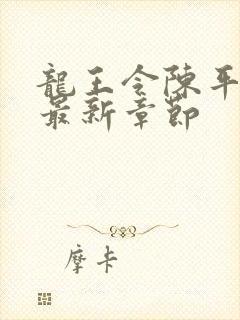 龍王令陳平
最新章節
摩卡